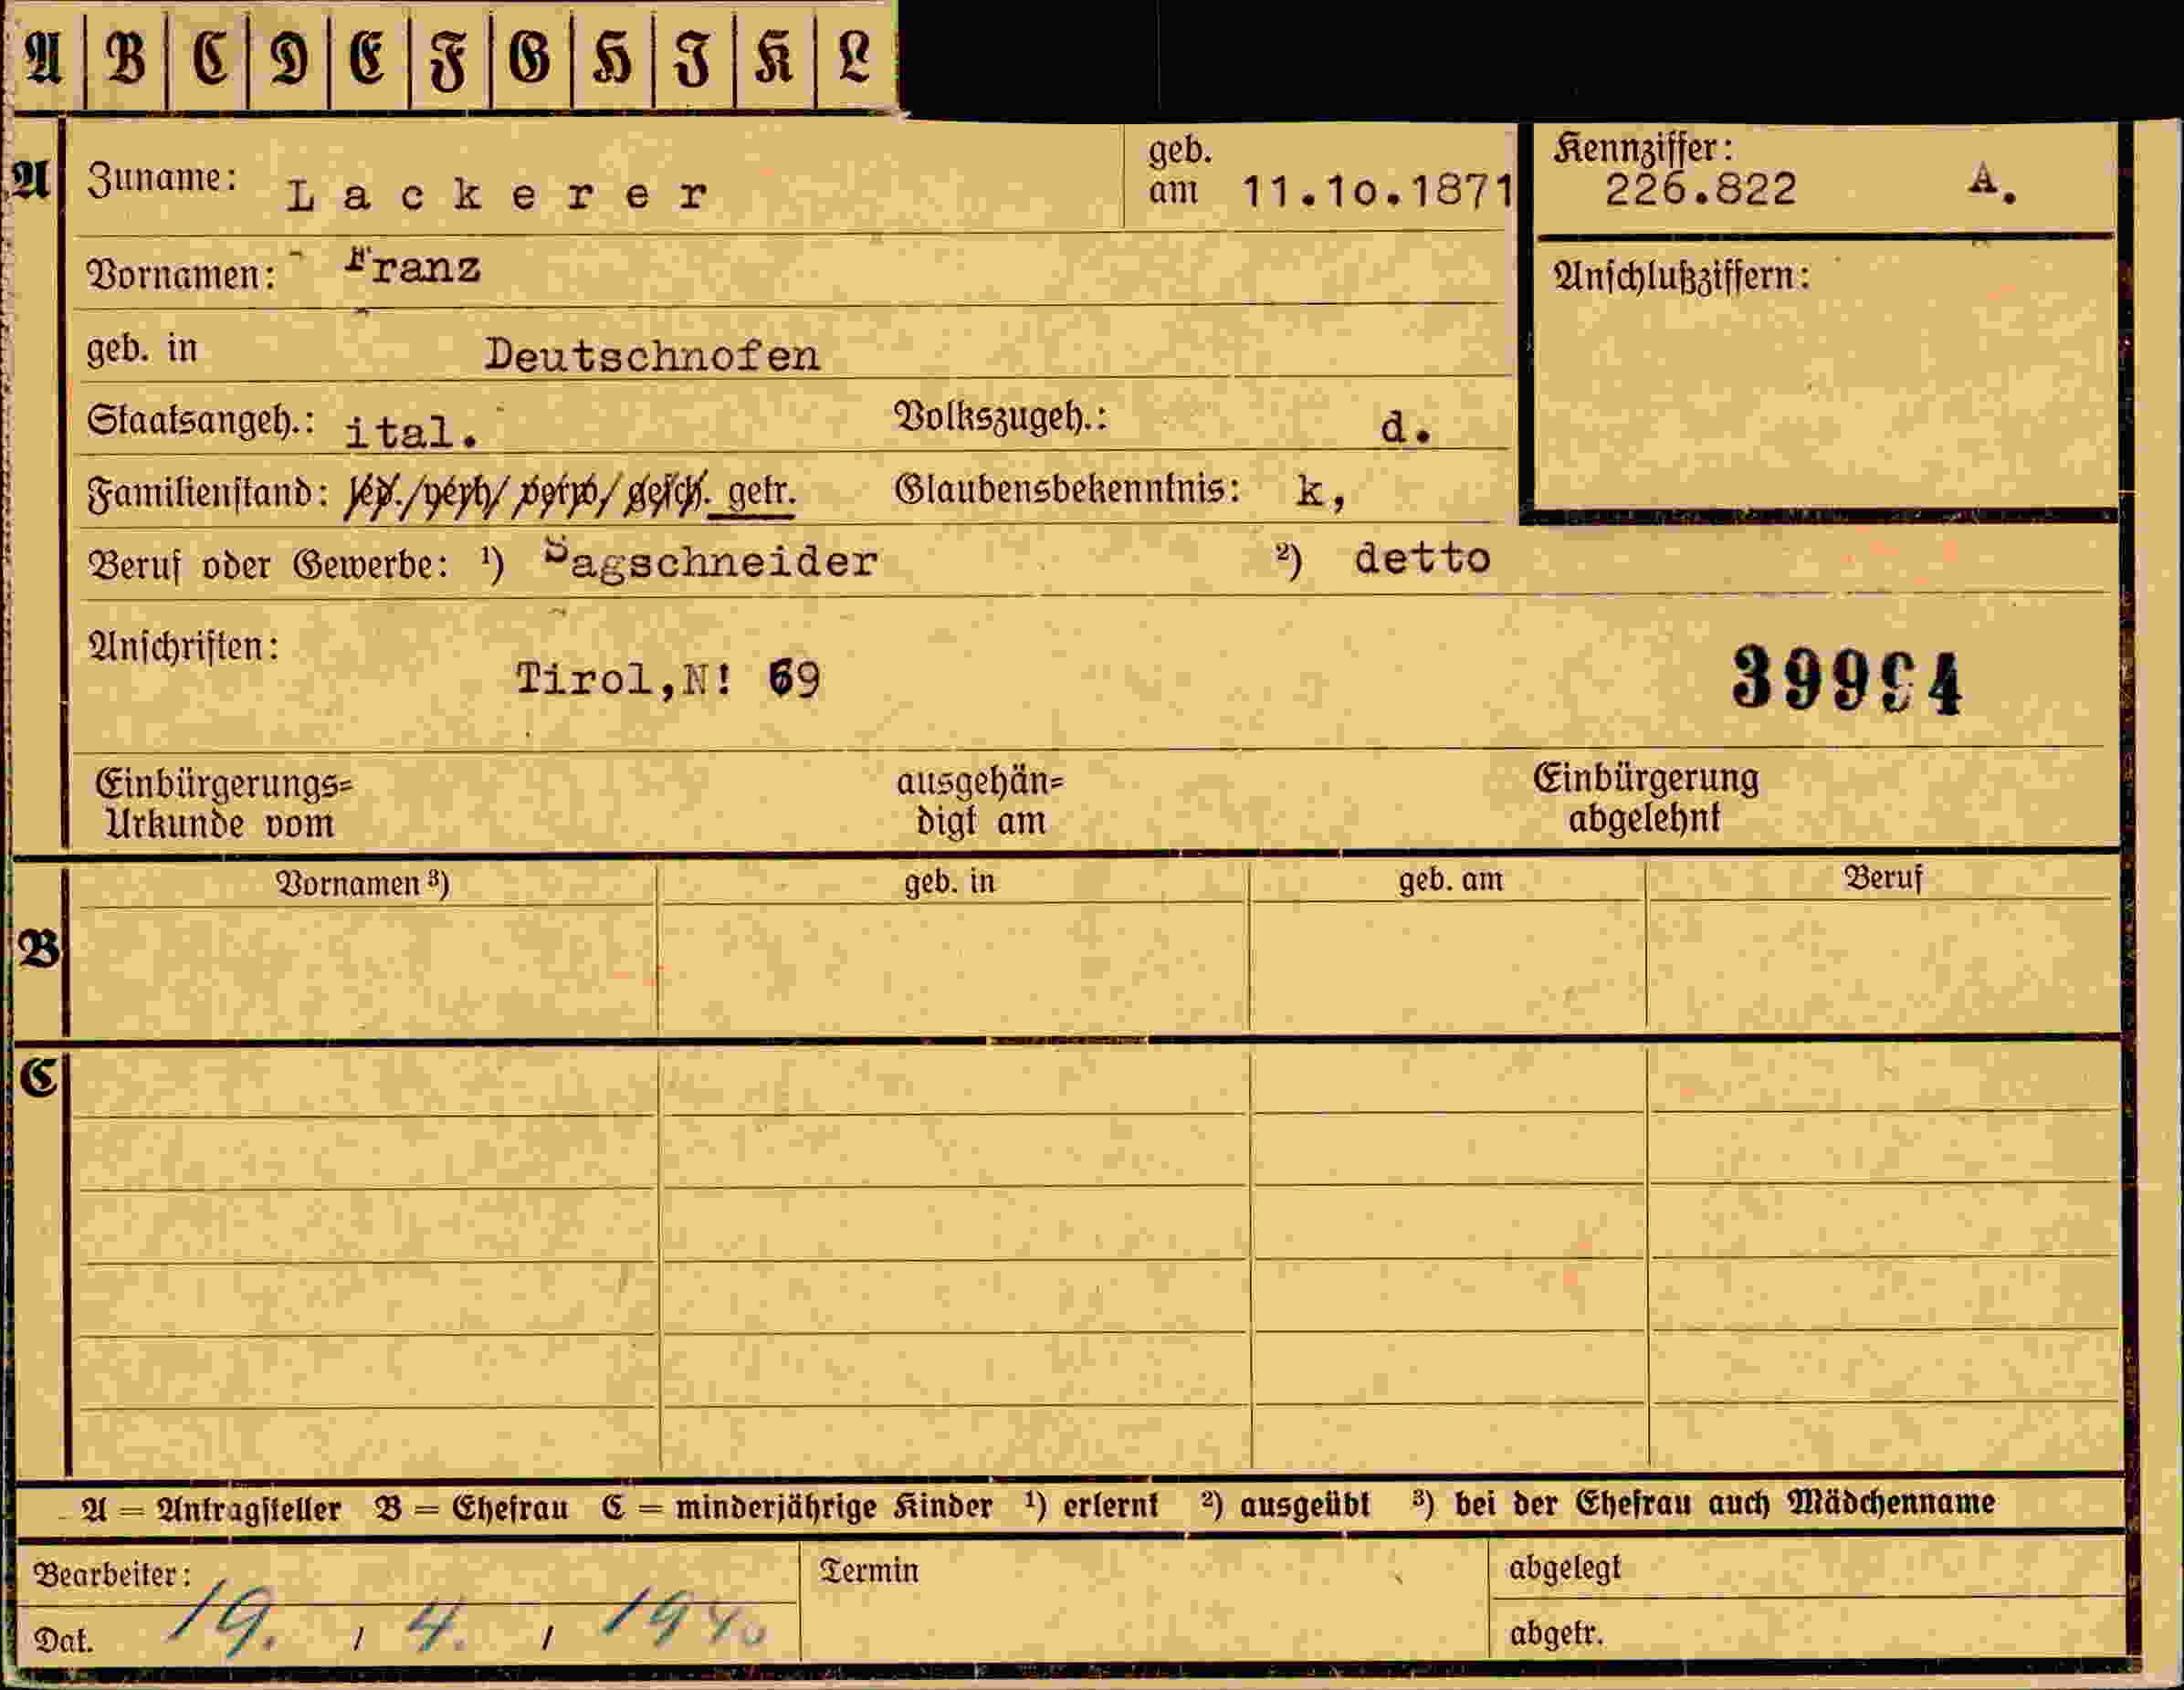 A B C D E F G H I K L
A Zuname: Lackerer geb. am 11.10.1871 Kennziffer: 226.822 A.
Vornamen: Franz Anschlußziffern:
geb. in Deutschnofen
Staatsangeh.: ital. Volkszugeh.: d.
Familienstand: led./verh/verw/gesch. getr. Glaubensbekenntnis: k,
Beruf oder Gewerbe: ¹) Sagschneider ²) detto
Anschriften:
Tirol,N! 69 39994
Einbürgerungs= ausgehän= Einbürgerung
Urkunde vom digt am abgelehnt
Vornamen ³) geb. in geb. am Beruf
B
C
A = Antragsteller B = Ehefrau C = minderjährige Kinder ¹) erlernt ²) ausgeübt ³) bei der Ehefrau auch Mädchenname
Bearbeiter: Termin abgelegt
Dat. 19. / 4. / 1940 abgetr.